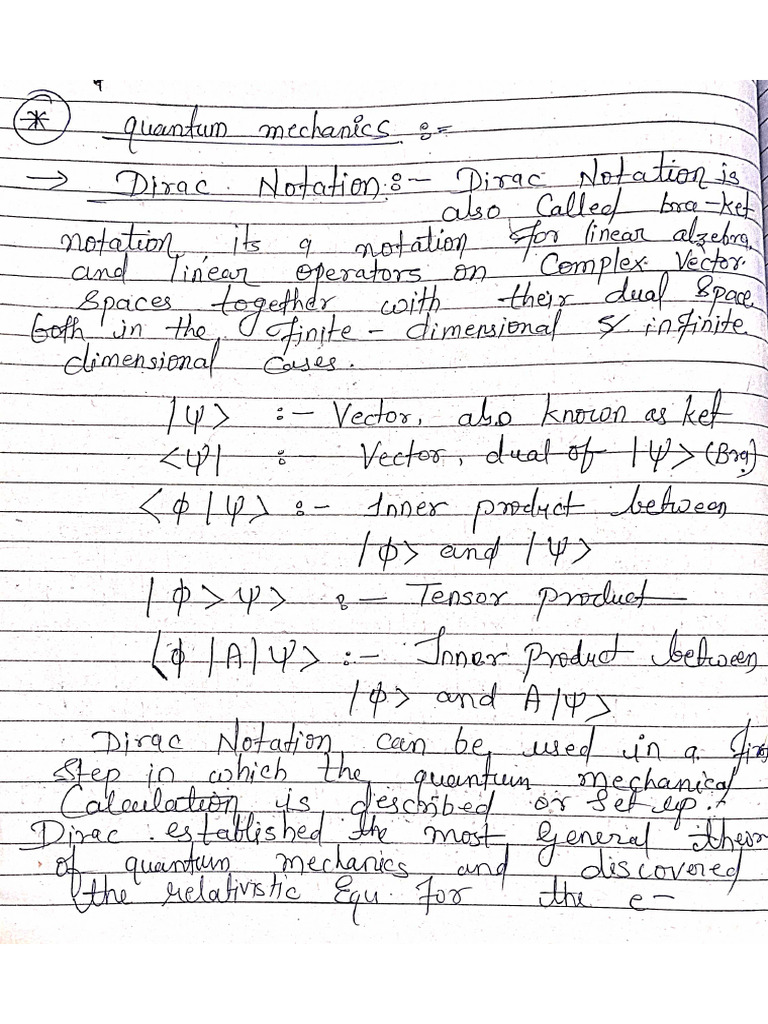 * quantum mechanics :-
→ Dirac Notation :- Dirac Notation is
also Called bra-ket
notation, its a notation for linear alzebra,
and linear operators on Complex Vector
Spaces together with their dual Space
both in the finite-dimensional & infinite
dimensional Cases.
|ψ> :- Vector, also known as ket
<ψ| : Vector, dual of |ψ> (Bra)
<ϕ|ψ> :- Inner product between
|ϕ> and |ψ>
|ϕ>ψ> :- Tensor product
<ϕ|A|ψ> :- Inner Product between
|ϕ> and A|ψ>
Dirac Notation can be used in a
Step in which the quantum mechanical
Calculation is described or Set up.
Dirac established the most general
of quantum mechanics and discovered
the relativistic Equ. For the e-